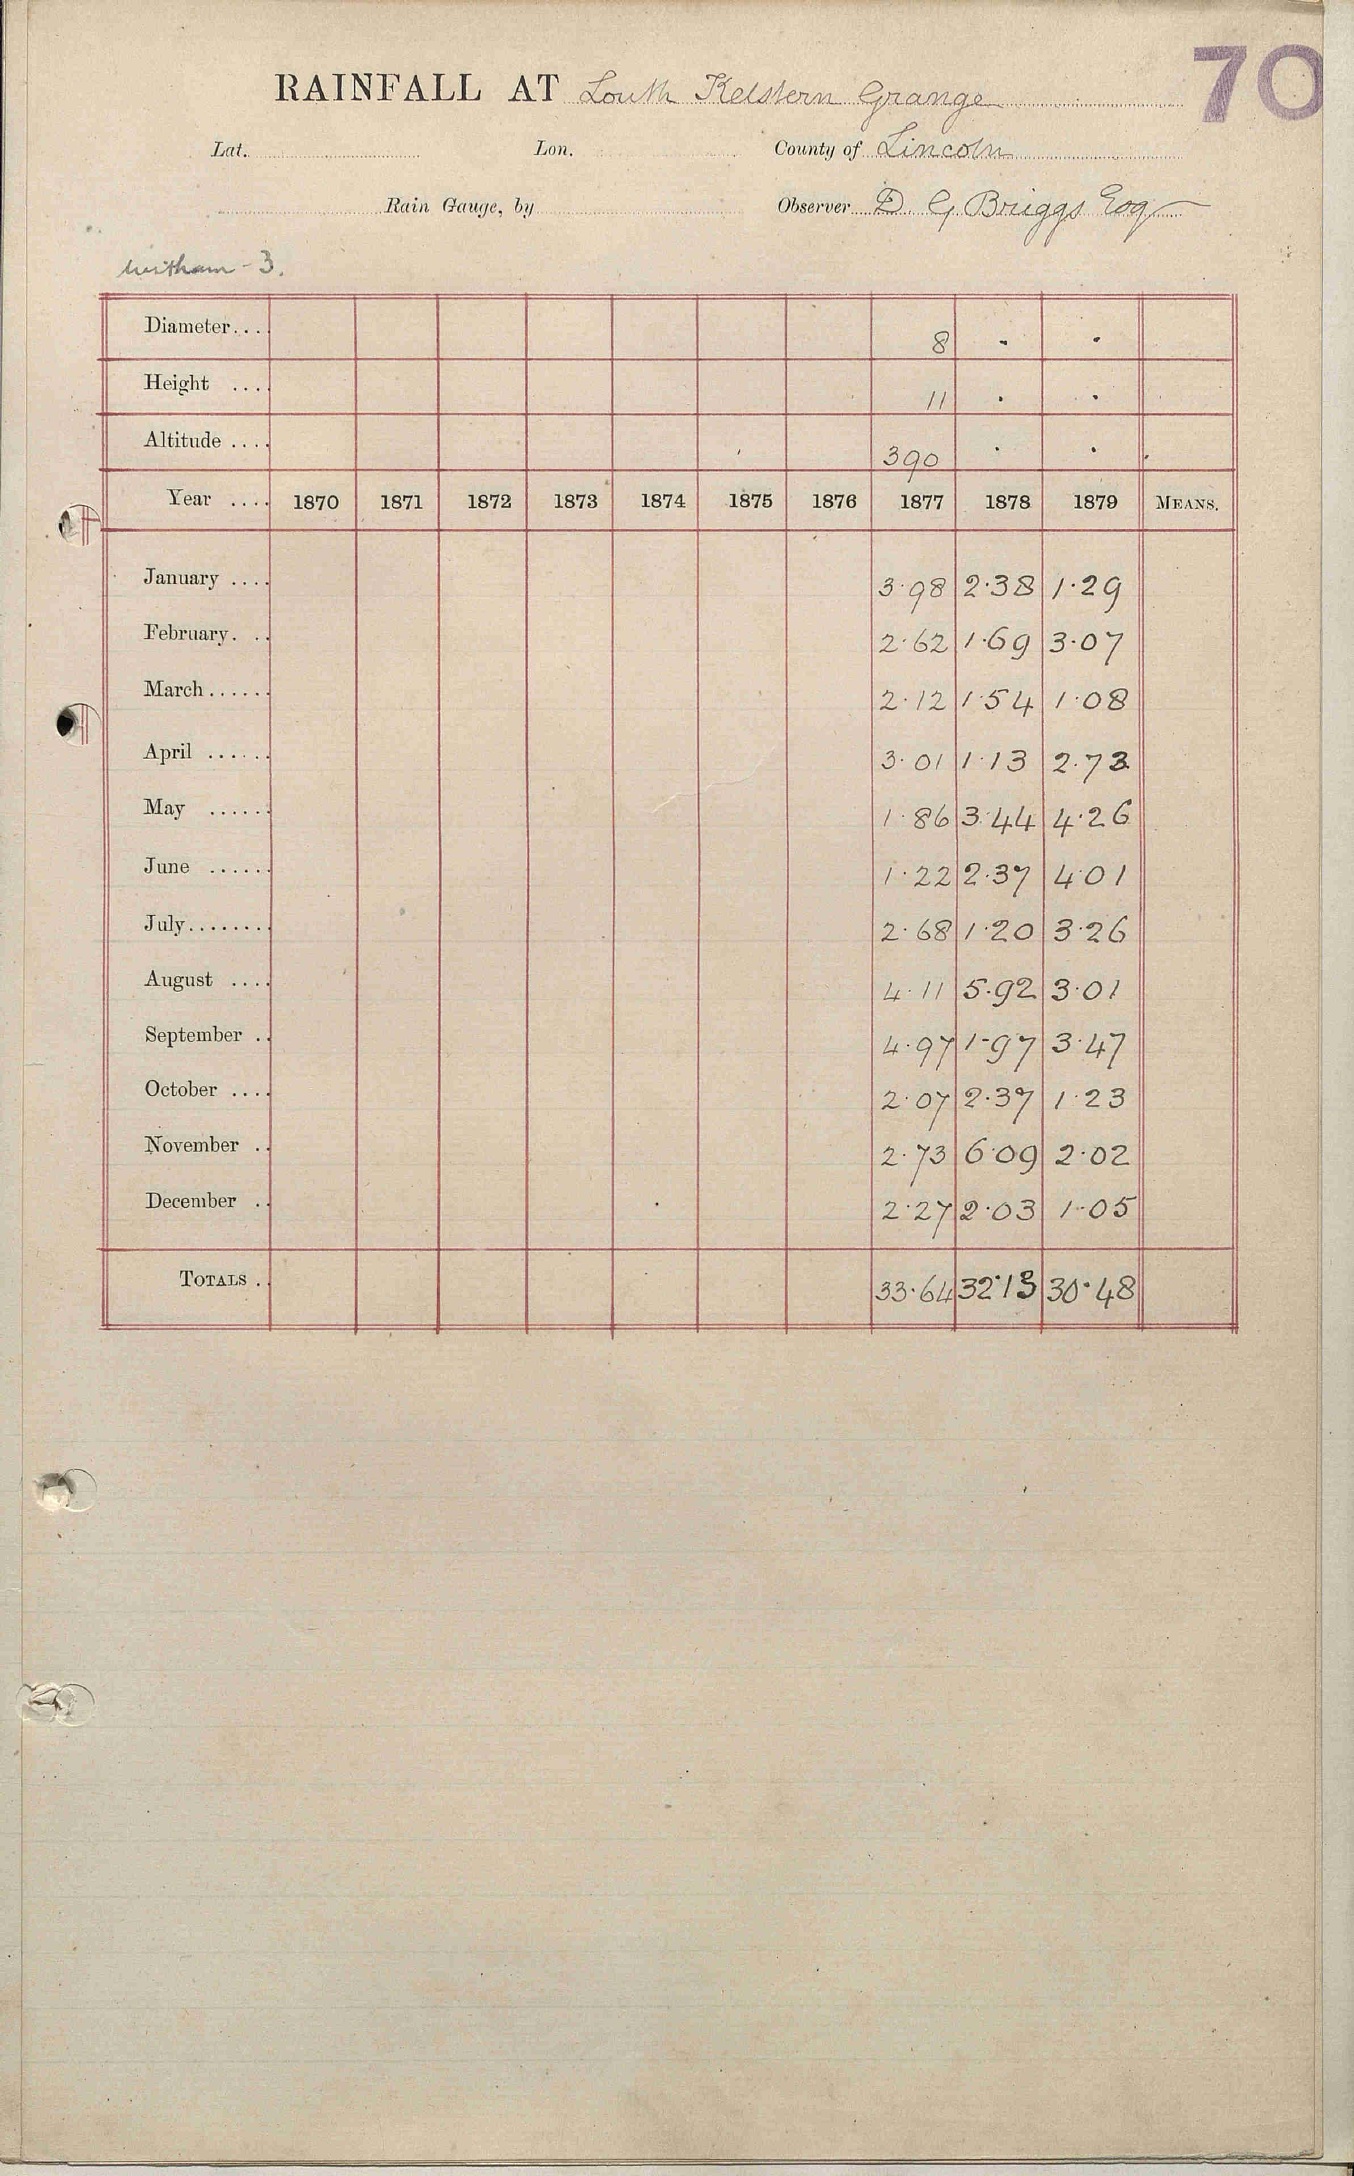 70
RAINFALL AT Louth Kelstern Grange
Lat. Lon. County of Lincoln
Rain Gauge, by Observer D. G. Briggs Esq
Witham - 3.
Diameter.... 8 · ·
Height .... 11 · ·
Altitude .... 390 · ·
Year .... 1870 1871 1872 1873 1874 1875 1876 1877 1878 1879 MEANS.
January .... 3.98 2.38 1.29
February. .. 2.62 1.69 3.07
March...... 2.12 1.54 1.08
April ...... 3.01 1.13 2.73
May ...... 1.86 3.44 4.26
June ...... 1.22 2.37 4.01
July........ 2.68 1.20 3.26
August .... 4.11 5.92 3.01
September .. 4.97 1.97 3.47
October .... 2.07 2.37 1.23
November .. 2.73 6.09 2.02
December .. 2.27 2.03 1.05
TOTALS .. 33.64 32.13 30.48